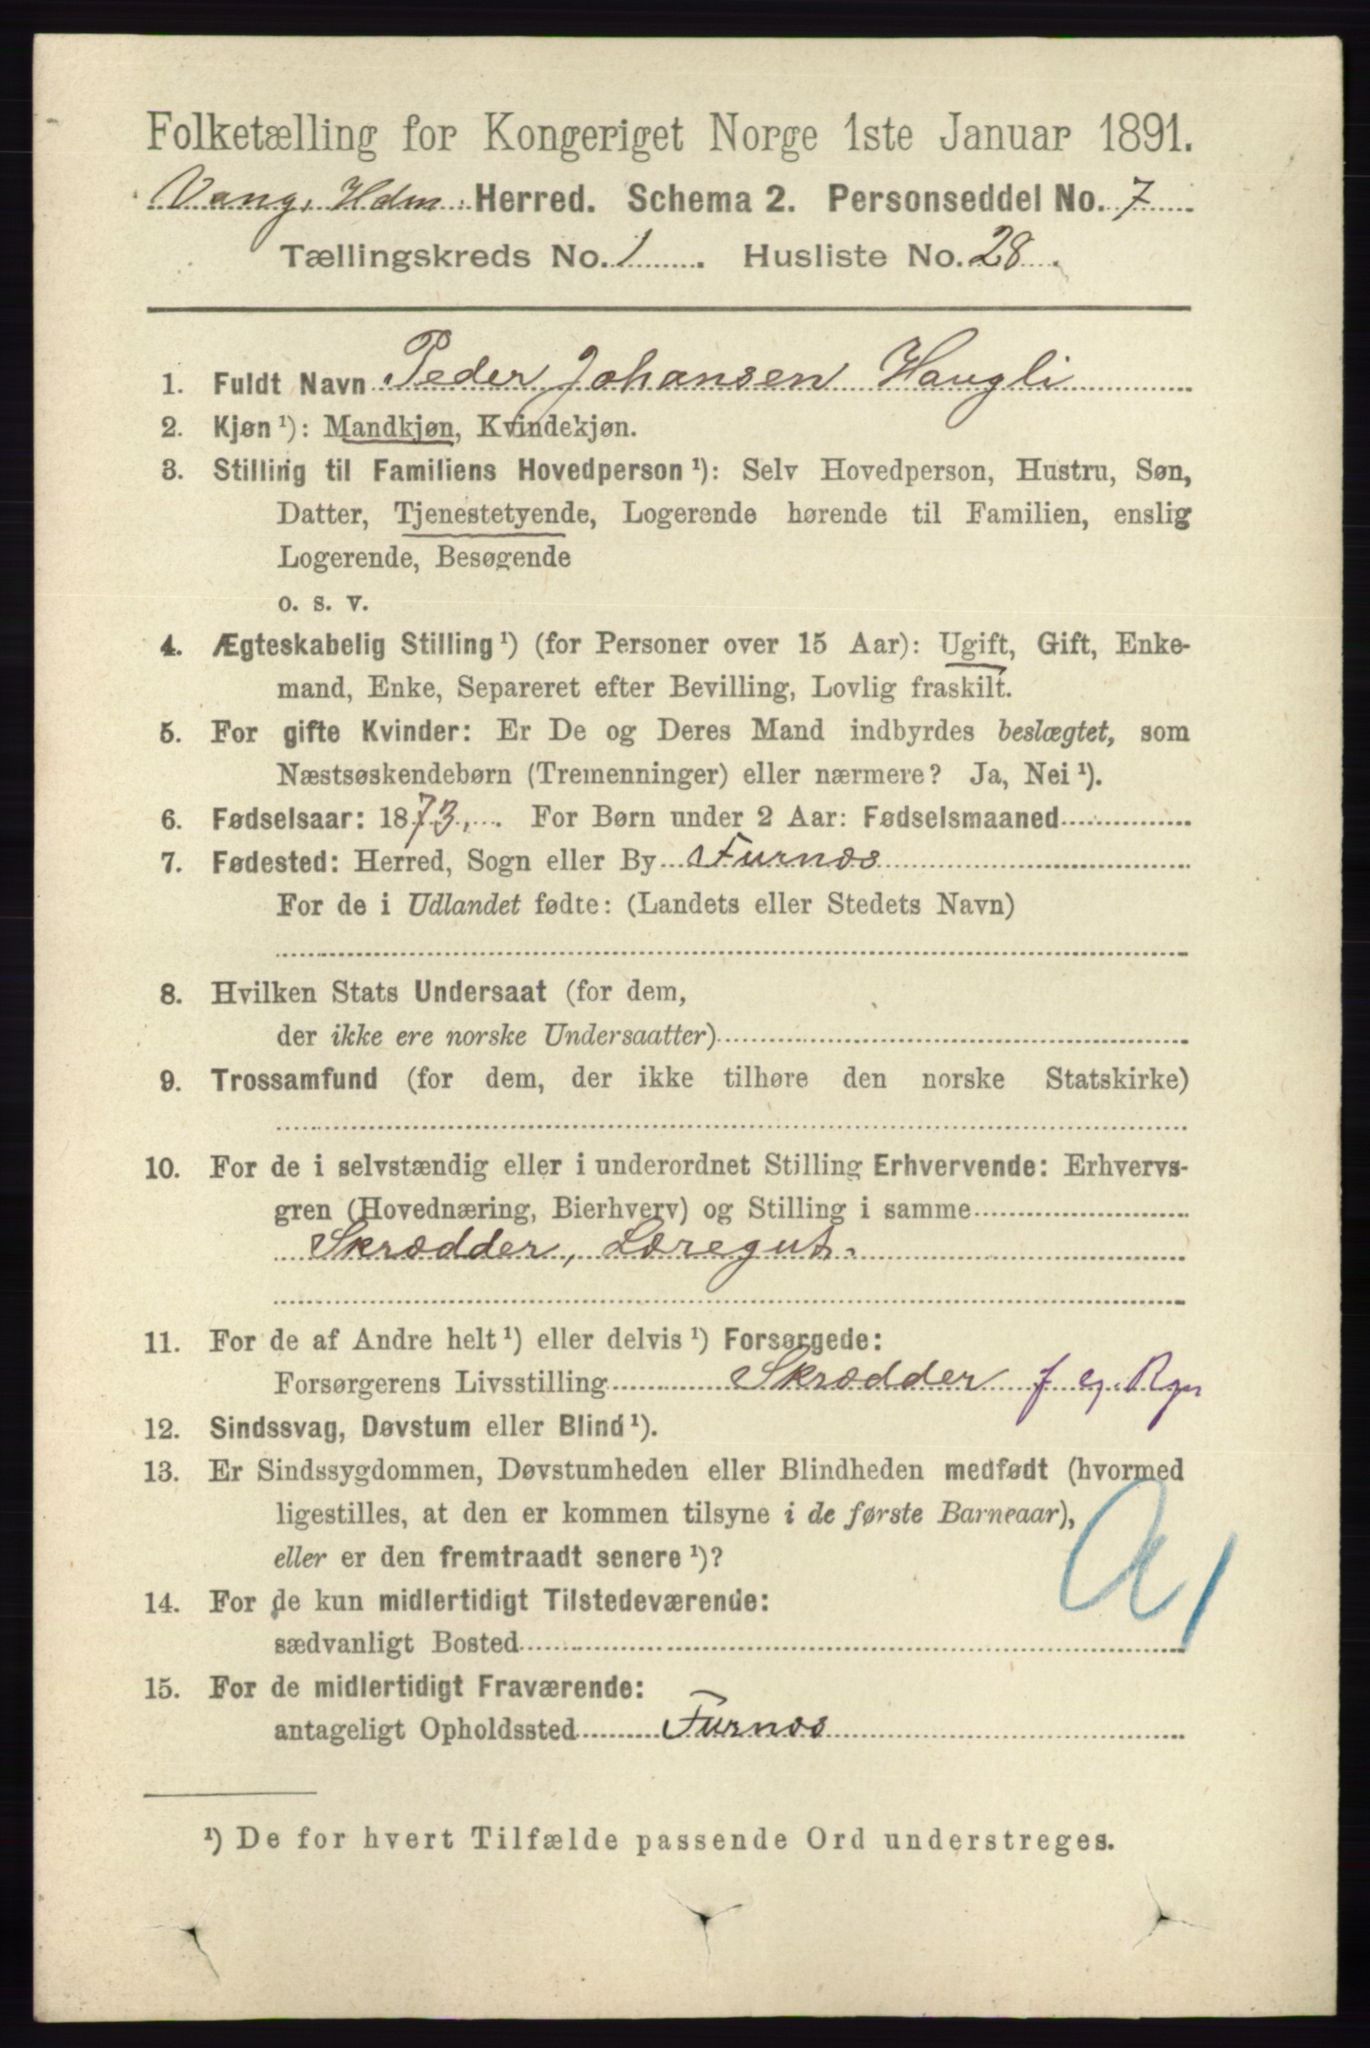 Folketælling for Kongeriget Norge 1ste Januar 1891.
Vang, Hdm. Herred. Schema 2. Personseddel No. 7
Tællingskreds No. 1 . Husliste No. 28 .
1. Fuldt Navn Peder Johansen Haugli
2. Kjøn ¹): Mandkjøn, Kvindekjøn.
3. Stilling til Familiens Hovedperson ¹): Selv Hovedperson, Hustru, Søn,
Datter, Tjenestetyende, Logerende hørende til Familien, enslig
Logerende, Besøgende
o. s. v.
4. Ægteskabelig Stilling ¹) (for Personer over 15 Aar): Ugift, Gift, Enke-
mand, Enke, Separeret efter Bevilling, Lovlig fraskilt.
5. For gifte Kvinder: Er De og Deres Mand indbyrdes beslægtet, som
Næstsøskendebørn (Tremenninger) eller nærmere? Ja, Nei ¹).
6. Fødselsaar: 1873, . For Børn under 2 Aar: Fødselsmaaned
7. Fødested: Herred, Sogn eller By Furnæs
For de i Udlandet fødte: (Landets eller Stedets Navn)
8. Hvilken Stats Undersaat (for dem,
der ikke ere norske Undersaatter)
9. Trossamfund (for dem, der ikke tilhøre den norske Statskirke)
10. For de i selvstændig eller i underordnet Stilling Erhvervende: Erhvervs-
gren (Hovednæring, Bierhverv) og Stilling i samme
Skrædder, Læregut.
11. For de af Andre helt ¹) eller delvis ¹) Forsørgede:
Forsørgerens Livsstilling Skrædder f eg. Rgn
12. Sindssvag, Døvstum eller Blind ¹).
13. Er Sindssygdommen, Døvstumheden eller Blindheden medfødt (hvormed
ligestilles, at den er kommen tilsyne i de første Barneaar),
eller er den fremtraadt senere ¹)?
14. For de kun midlertidigt Tilstedeværende:
sædvanligt Bosted
15. For de midlertidigt Fraværende:
antageligt Opholdssted Furnæs
¹) De for hvert Tilfælde passende Ord understreges.